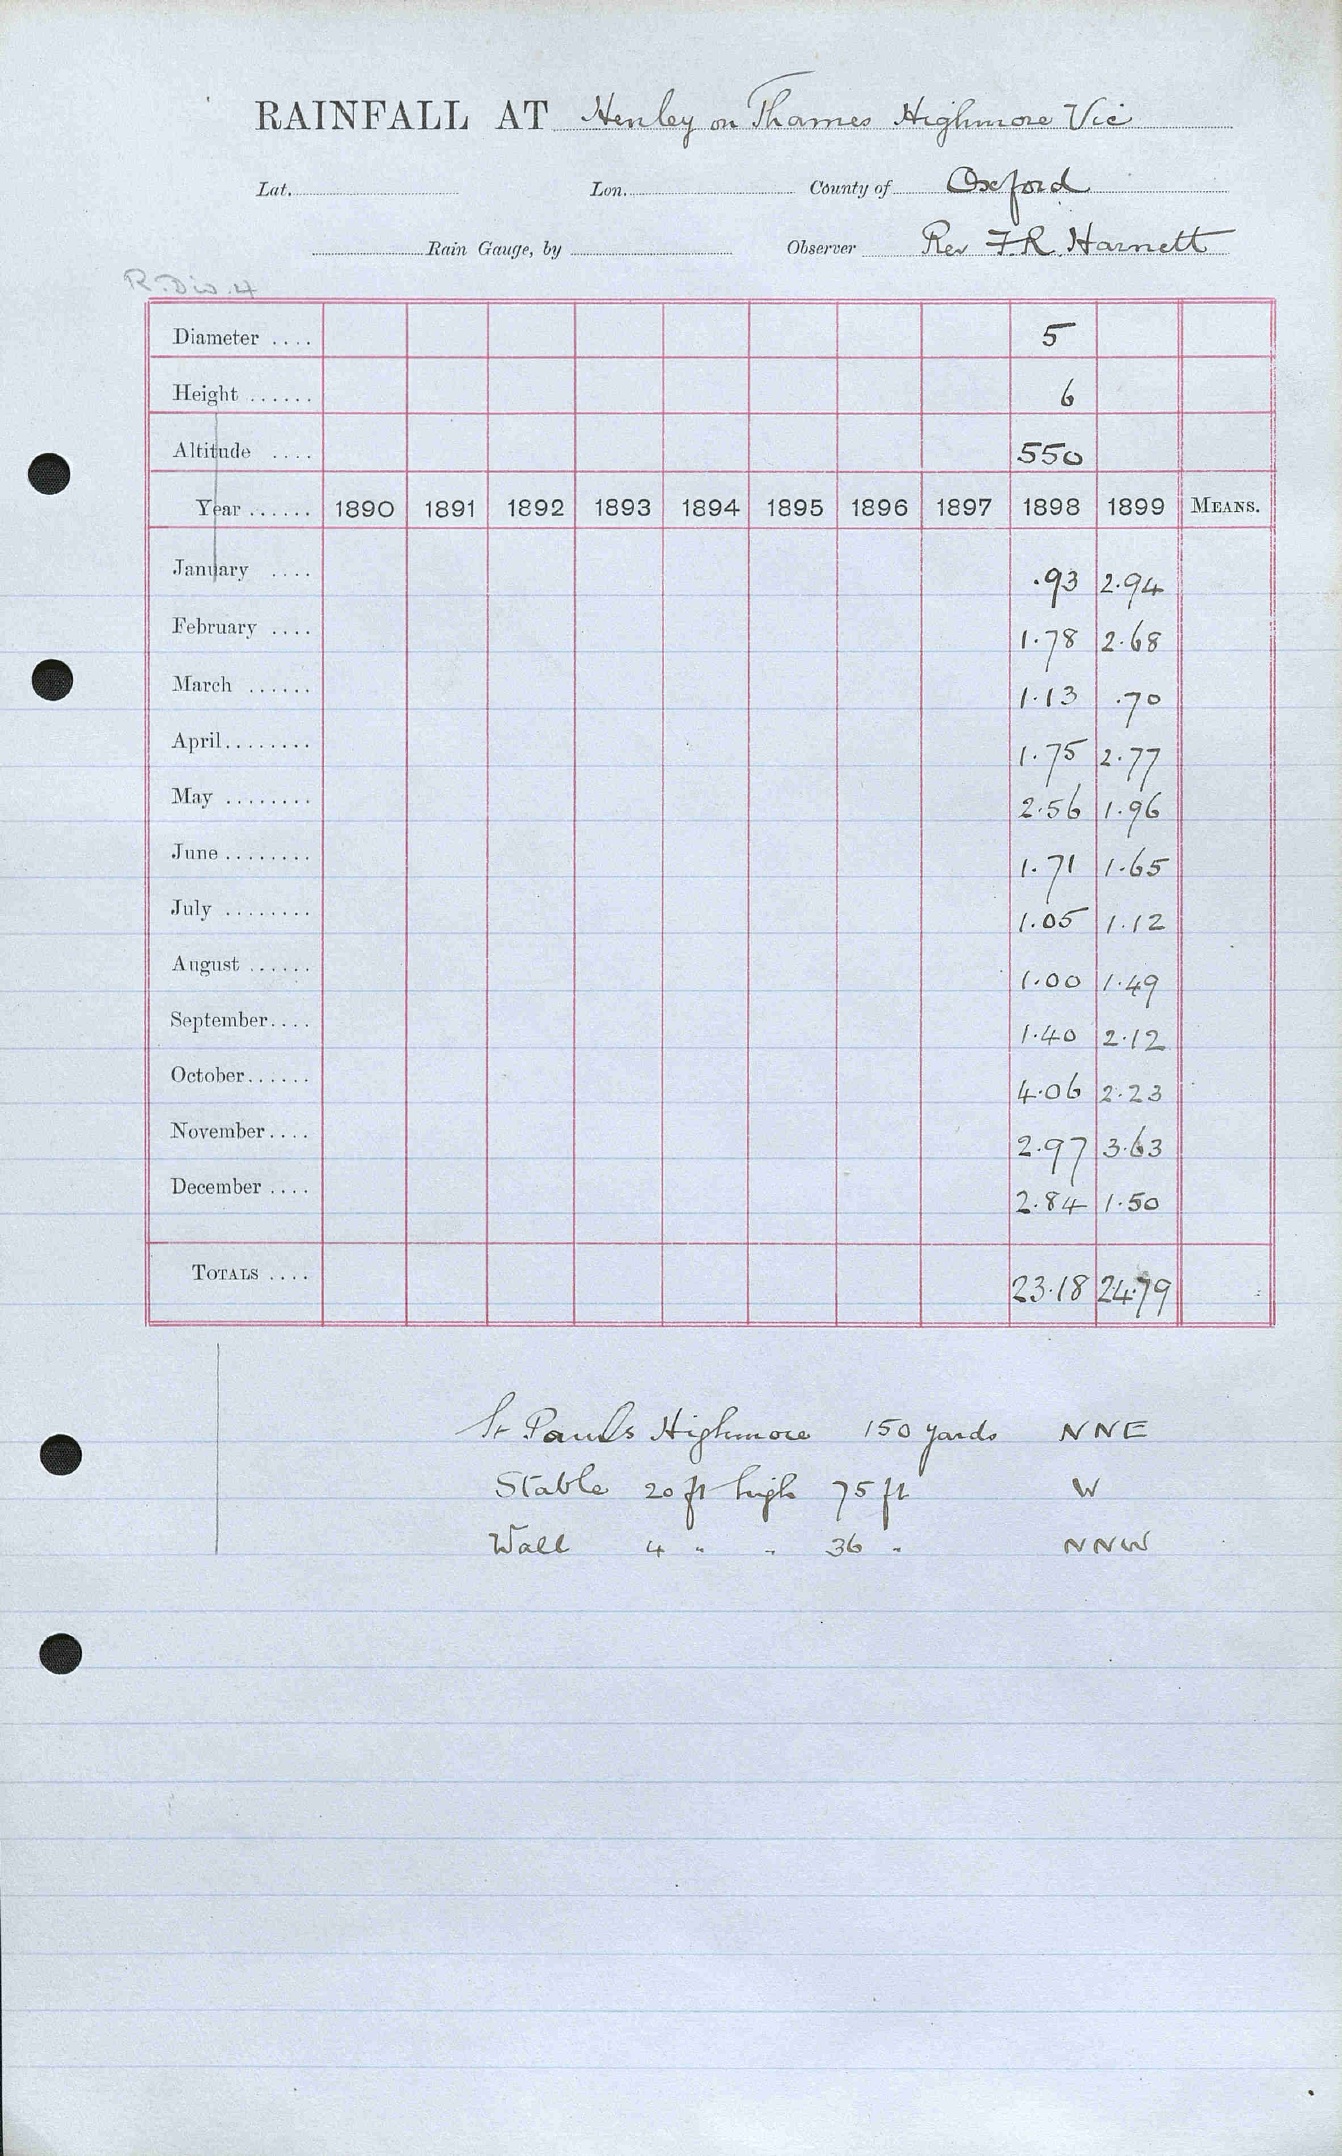 RAINFALL AT Henley on Thames Highmore Vic
Lat. Lon. County of Oxford
Rain Gauge, by Observer Rev F.R. Harnett
R. Div. 4
Diameter .... 5
Height ...... 6
Altitude .... 550
Year ...... 1890 1891 1892 1893 1894 1895 1896 1897 1898 1899 MEANS.
January .... .93 2.94
February .... 1.78 2.68
March ...... 1.13 .70
April........ 1.75 2.77
May ........ 2.56 1.96
June ........ 1.71 1.65
July ........ 1.05 1.12
August ...... 1.00 1.49
September.... 1.40 2.12
October...... 4.06 2.23
November.... 2.97 3.63
December .... 2.84 1.50
TOTALS .... 23.18 24.79
St Pauls Highmore 150 yards NNE
Stable 20 ft high 75 ft W
Wall 4 " " 36 " NNW